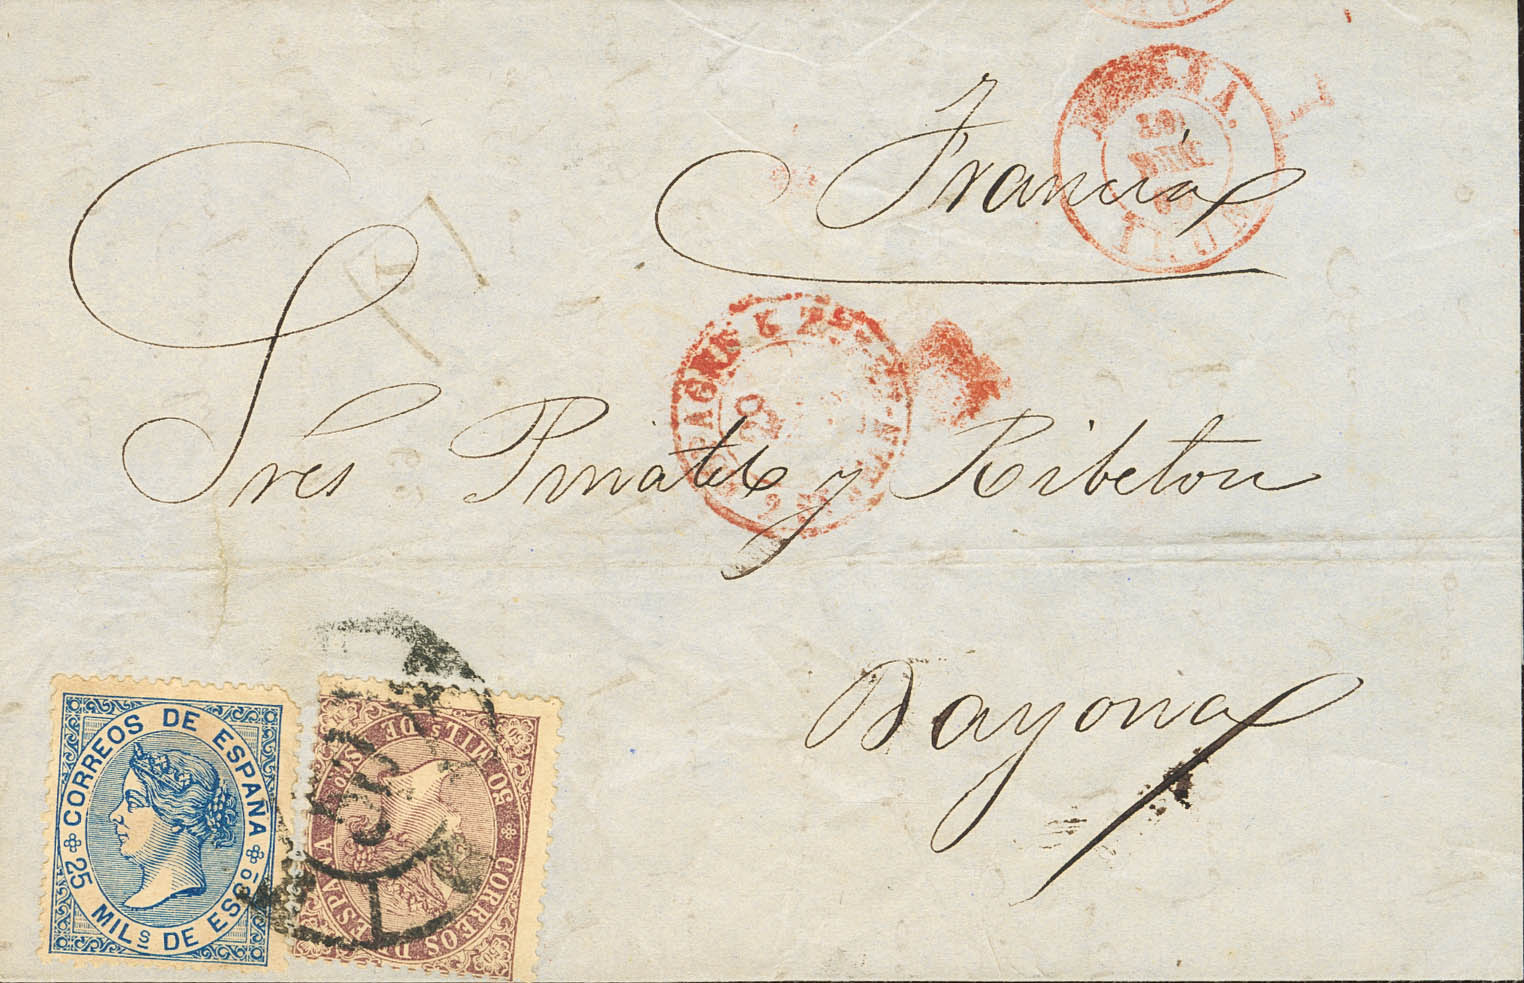 Francia
Sres Pinatel y Ribeton
Bayona
CORREOS DE ESPAÑA
25 MILS DE ESCO
CORREOS DE ESPAÑA
50 MILS DE
IRUN